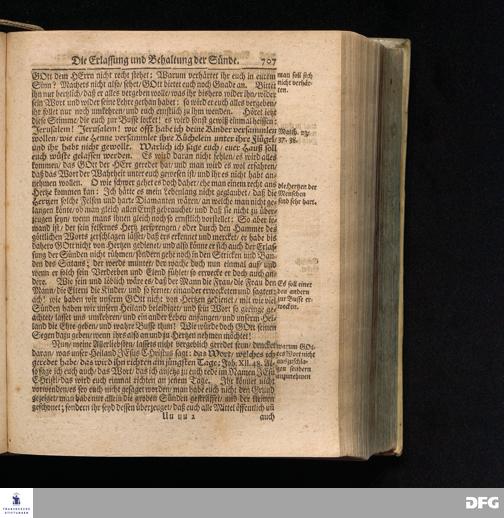 Die Erlassung und Behaltung der Sünde. 707
GOtt dem HErrn nicht recht stehet: Warum verhärtet ihr euch in eurem
Sinn? Machets nicht also/ sehet/ GOtt bietet euch noch Gnade an. Bittet
ihn nur hertzlich/ daß er alles vergeben wolle/ was ihr bishero wider ihn/ wider
sein Wort und wider seine Lehre gethan habet: so wird er euch alles vergeben/
ihr sollet nur noch umkehren/ und euch ernstlich zu ihm wenden. Höret jetzt
diese Stimme die euch zur Busse locket! es wird sonst gewiß einmal heissen:
Jerusalem! Jerusalem! wie offt habe ich deine Kinder versammlen
wollen/ wie eine Henne versammlet ihre Küchelein unter ihre Flügel/
und ihr habt nicht gewollt. Warlich ich sage euch/ euer Hauß soll
euch wüste gelassen werden. Es wird daran nicht fehlen/ es wird alles
kommen/ das GOtt der HErr geredet hat/ und man wird es wol erfahren/
daß das Wort der Wahrheit unter euch gewesen ist/ und ihr es nicht habt an-
nehmen wollen. O wie schwer gehet es doch daher/ ehe man einem recht ans
Hertze kommen kan: Ich hätte es mein Lebenlang nicht geglaubet/ daß die
Hertzen solche Felsen und harte Diamanten wären/ an welche man nicht ge-
langen könte/ ob man gleich allen Ernst gebrauchet/ und daß sie nicht zu über-
zeugen seyn/ wenn man ihnen gleich noch so ernstlich vorstellet: So aber je-
mand ist/ der sein felsernes Hertz zersprengen/ oder durch den Hammer des
göttlichen Worts zerschlagen lässet/ daß ers erkennet und mercket/ er habe bis
dahero GOtt nicht von Hertzen gedienet/ und also könne er sich auch der Erlas-
sung der Sünden nicht rühmen/ sondern gehe noch in den Stricken und Ban-
den des Satans; der werde munter/ der wache doch nun einmal auf/ und
wenn er solch sein Verderben und Elend fühlet/ so erwecke er doch auch an-
dere. Wie fein und löblich wäre es/ daß der Mann die Frau/ die Frau den
Mann/ die Eltern die Kinder/ und so ferner/ einander erweckten und sagten:
ach! wie haben wir unserm GOtt nicht von Hertzen gedienet/ mit wie viel
Sünden haben wir unsern Heiland beleidiget/ und sein Wort so geringe ge-
achtet/ lasset uns umkehren/ und ein ander Leben anfangen/ und unserm Hei-
land die Ehre geben/ und wahre Busse thun! Wie würde doch GOtt seinen
Segen dazu geben/ wenn ihrs also an und zu Hertzen nehmen möchtet!
Nun/ meine Allerliebsten/ lassets nicht vergeblich geredet seyn/ dencket
daran/ was unser Heiland JEsus Christus sagt: das Wort/ welches ich
geredet habe/ das wird ihn richten am jüngsten Tage; Joh. XII. 48. Al-
so sage ich euch auch/ das Wort/ das ich anjetzt zu euch rede im Namen JEsu
CHristi/ das wird euch einmal richten an jenem Tage. Ihr könnet nicht
vorwenden/ es sey euch nicht gesaget worden/ man habe euch nicht den Grund
gezeiget/ man habe nur allein die groben Sünden gestraffet/ und der kleinen
geschonet; sondern ihr seyd dessen überzeuget/ daß euch alle Mittel öffentlich un
Uu uu 2 auch
man soll sich
nicht verhär-
ten.
Matth. 23/
37. 38.
die Hertzen der
Menschen
sind sehr hart.
Es soll einer
den andern
zur Busse er-
wecken.
warum GOt-
tes Wort nicht
auszuschla-
gen sondern
anzunehmen
FRANCKESCHE
STIFTUNGEN
DFG